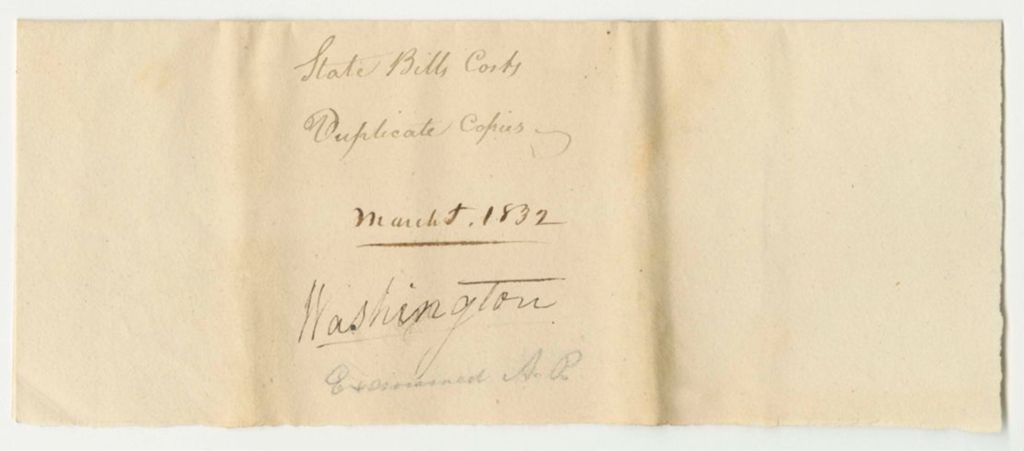 State Bills Costs
Duplicate Copies
March T. 1832
Washington
Examined A. P.